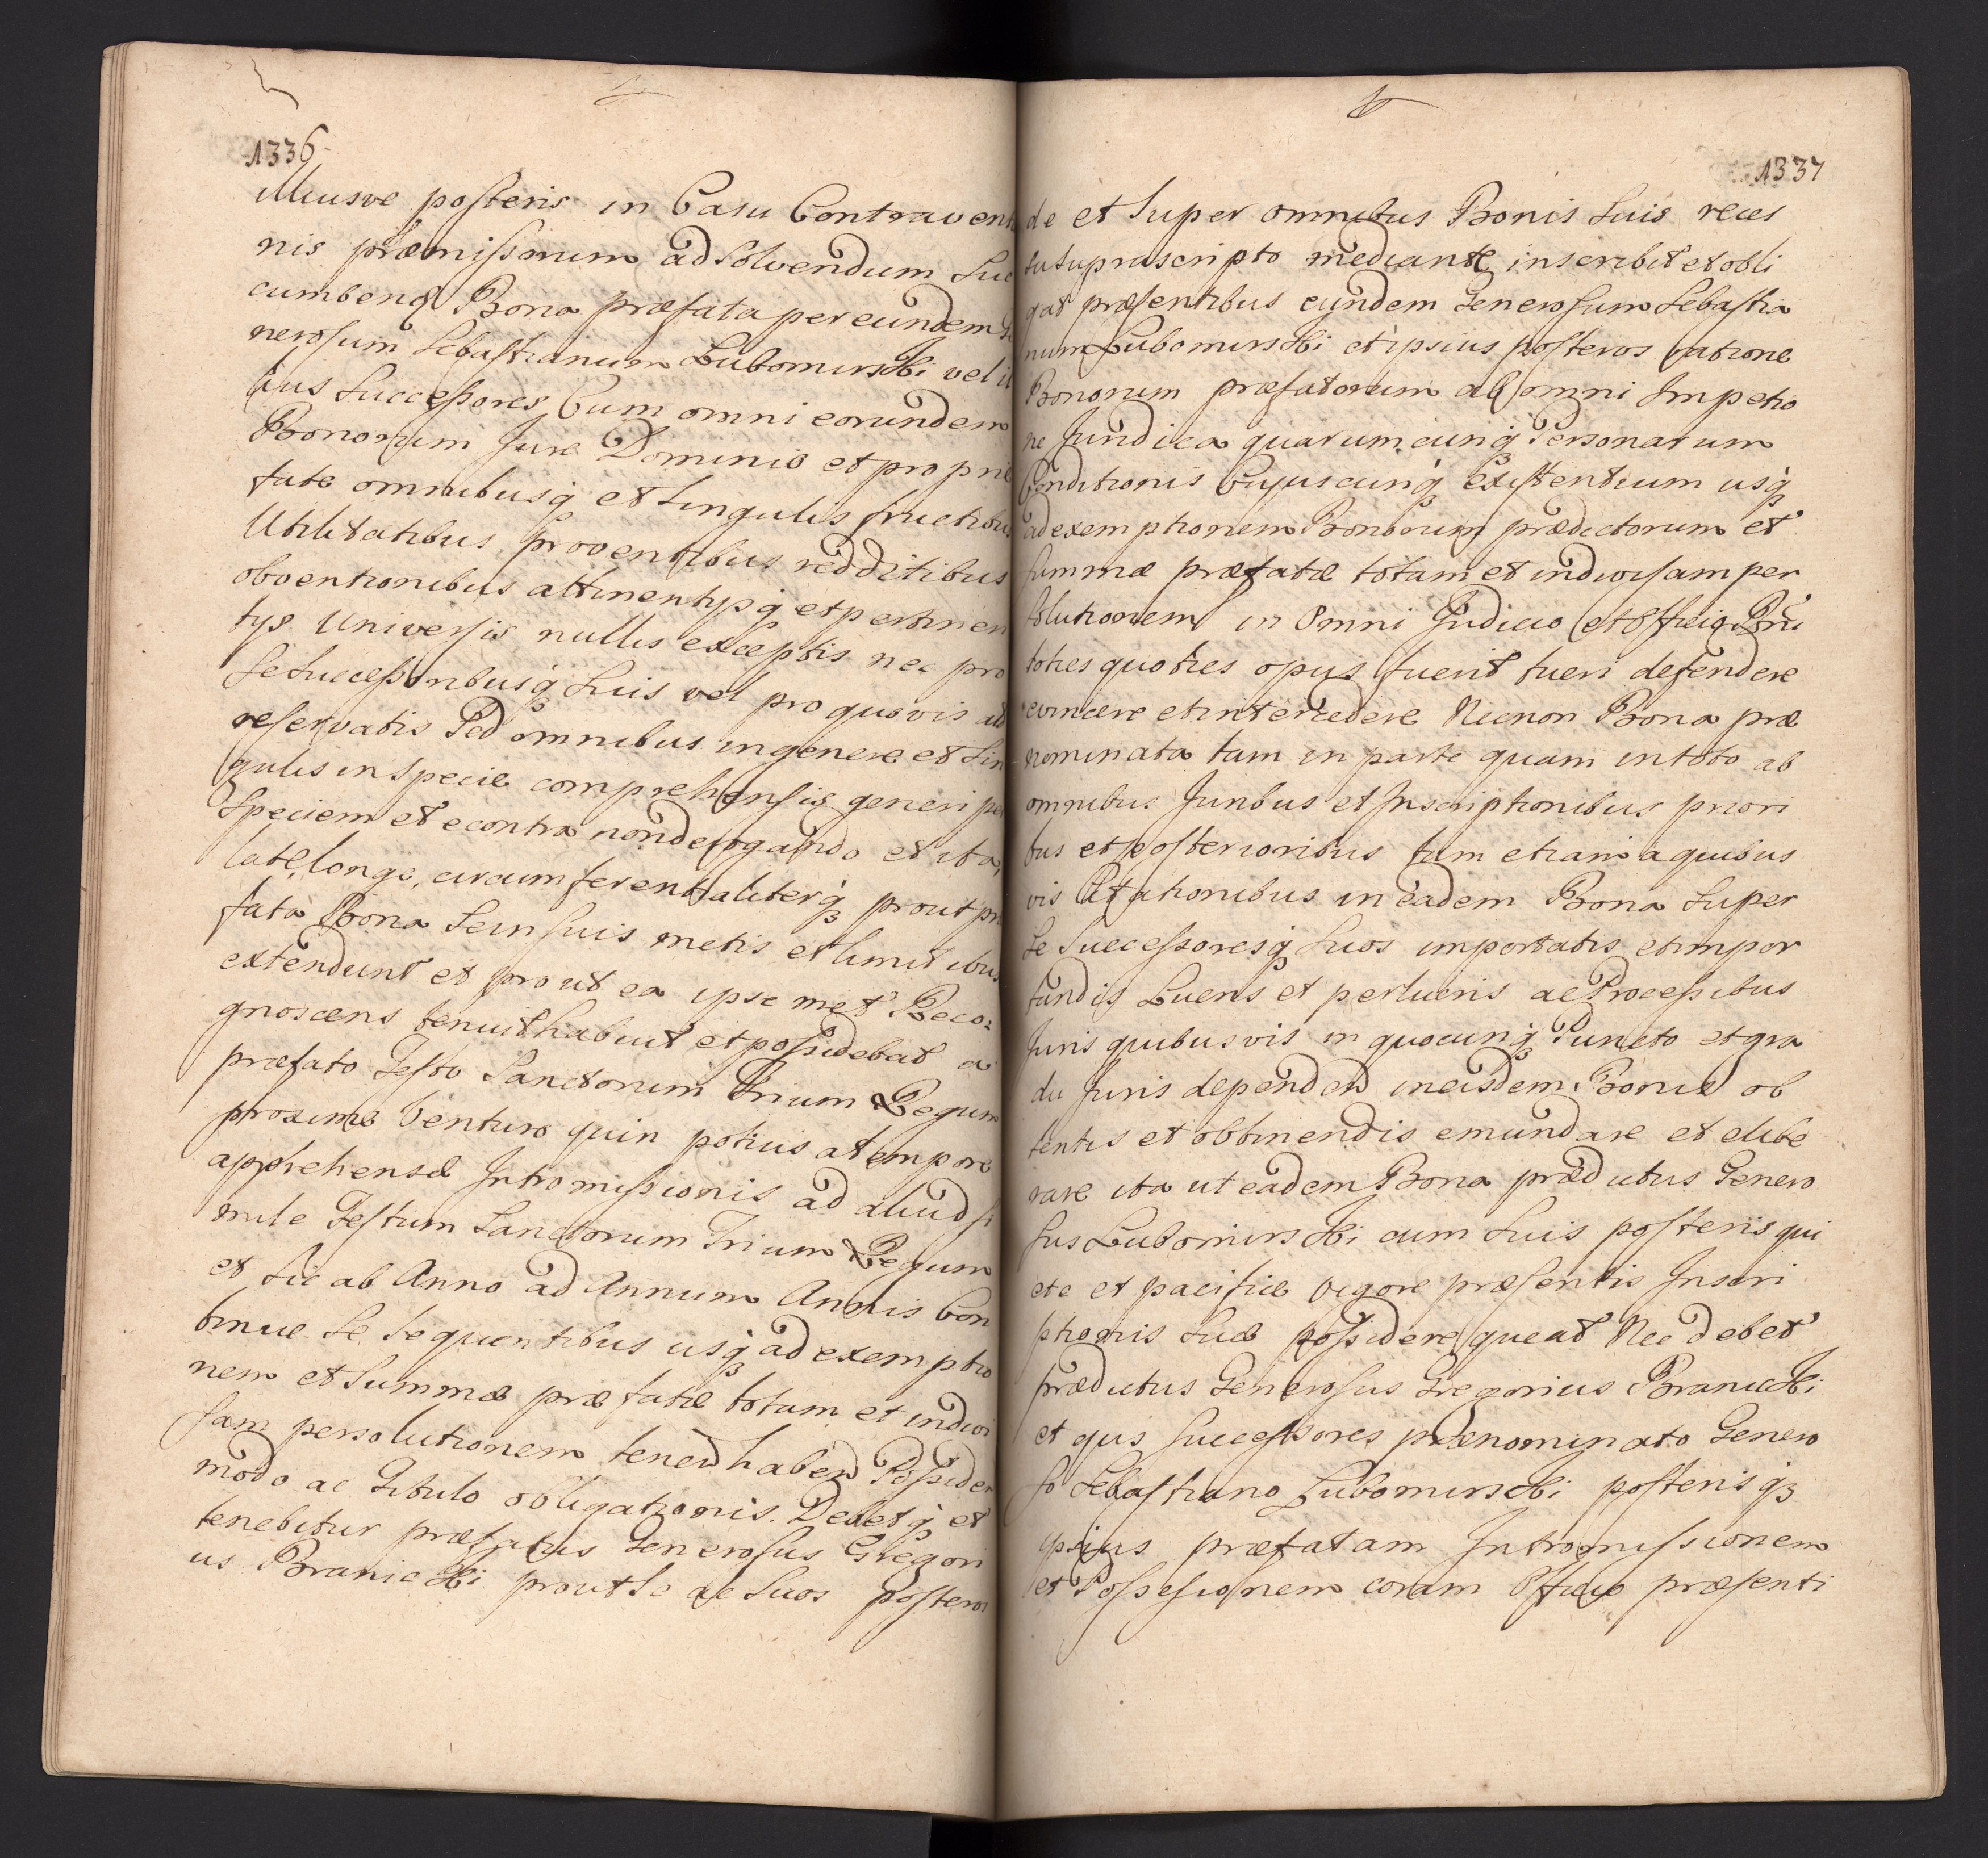 1336
illiusve posteris in Casu Contraventi
nis præmissorum ad Solvendum Suc
cumbend Bona præfata per eundem Ge
nerosum Sebastianum Lubomirski vel il
lius Successores Cum omni eorundem
Bonorum Jure Dominio et proprie
tate omnibusq et Singulis fructibus
Utilitatibus proventibus redditibus
obventionibus attinentysq et pertinen
tys Universis nullis exceptis nec pro
Se Successoribusq Suis vel pro quovis alio
reservatis Sed omnibus in genere et Sin
gulis in Specie comprehensis generi per
Speciem et econtra non derogando et ita
late, longe, circumferentialiterq prout præ
fata Bona Se in Suis metis et limitibus
extendunt et prout ea ipse met Reco
gnoscens tenuit habuit et possidebat a
præfato Festo Sanctorum Trium Regum
proxime Venturo quin potius a tempore
apprehensæ Intromissionis ad aliud Si
mile Festum Sanctorum Trium Regum
et Sic ab Anno ad Annum Annis Con
tinue Se Sequentibus usq ad exemptio
nem et Summæ præfatæ totam et indivi
sam persolutionem tenend habend Possidend
modo ac Titulo obligationis. Debetq et
tenebitur præfatus Generosus Gregori
us Branicki prout Se ac Suos posteros
1337
de et Super omnibus Bonis Suis reces
su Supra scripto mediante inscribit et obli
gat præsentibus eundem Generosum Sebastia
num Lubomirski et ipsius posteros ratione
Bonorum præfatorum ab omni Impetio
ne Juridica quarumcunq Personarum
Conditionis Cujuscunq existentium usq
ad exemptionem Bonorum prædictorum et
Summæ præfatæ totam et indivisam per
solutionem in Omni Judicio et Officio Rni
toties quoties opus fuerit tueri defendere
evincere et intercedere Necnon Bona præ
nominata tam in parte quam in toto ab
omnibus Juribus et Inscriptionibus priori
bus et posterioribus tum etiam a quibus
vis in eadem Bona Super
Se Successoresq Suos importatis et impor
tandis Lucris et perlucris ac Processibus
Juris quibusvis in quocunq Puncto et gra
du Juris dependen in eisdem Bonis ob
tentis et obtinendis emundare et elibe
rare ita ut eadem Bona prædictus Genero
sus Lubomirski cum Suis posteris qui
ete et pacifice Vigore præsentis Inscri
ptionis Suæ possidere queat Nec debet
prædictus Generosus Gregorius Branicki
et ejus Successores prænominato Genero
so Sebastiano Lubomirski posterisq
ipsius præfatam Intromissionem
et Possessionem coram Officio præsenti